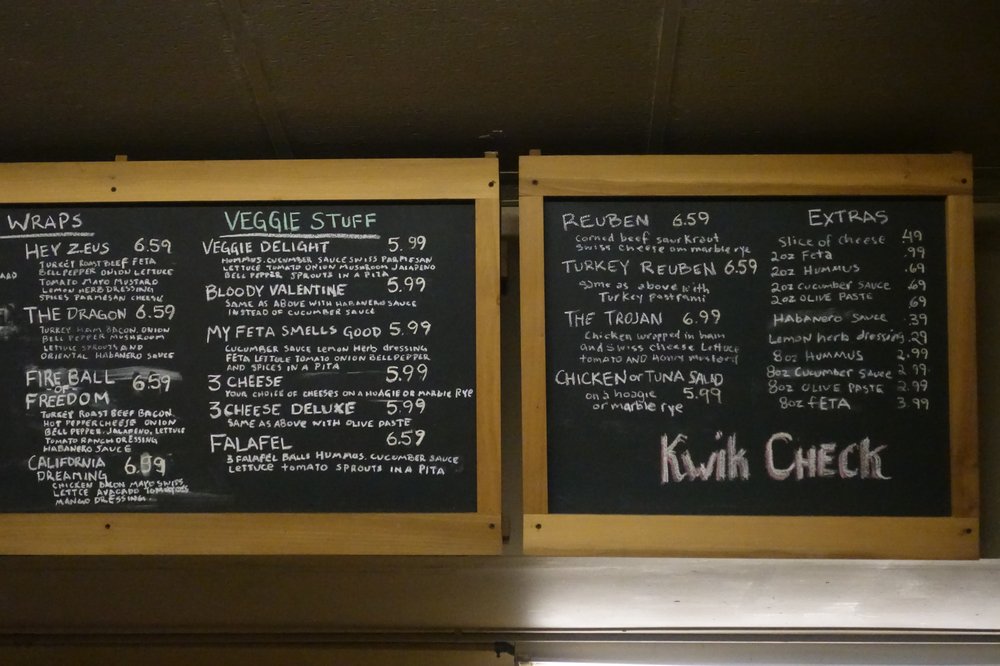 WRAPS
HEY ZEUS 6.59
TURKEY ROAST BEEF FETA
BELL PEPPER ONION LETTUCE
TOMATO MAYO MUSTARD
LEMON HERB DRESSING
SPICES PARMESAN CHEESE
THE DRAGON 6.59
TURKEY HAM BACON ONION
BELL PEPPER MUSHROOM
LETTUCE SPROUTS AND
ORIENTAL HABANERO SAUCE
FIRE BALL 6.59
OF
FREEDOM
TURKEY ROAST BEEF BACON
HOT PEPPER CHEESE ONION
BELL PEPPER, JALAPENO, LETTUCE
TOMATO RANCH DRESSING
HABANERO SAUCE
CALIFORNIA 6.59
DREAMING
CHICKEN BACON MAYO SWISS
LETTCE AVACADO TOMATOES
MANGO DRESSING
VEGGIE STUFF
VEGGIE DELIGHT 5.99
HUMMUS, CUCUMBER SAUCE SWISS PARMESAN
LETTUCE TOMATO ONION MUSHROOM JALAPENO
BELL PEPPER SPROUTS IN A PITA
BLOODY VALENTINE 5.99
SAME AS ABOVE WITH HABANERO SAUCE
INSTEAD OF CUCUMBER SAUCE
MY FETA SMELLS GOOD 5.99
CUCUMBER SAUCE LEMON Herb dressing
FETA LETTUCE TOMATO ONION BELL PEPPER
AND SPICES IN A PITA
3 CHEESE 5.99
YOUR CHOICE OF CHEESES ON A HOAGIE OR MARBLE RYE
3 CHEESE DELUXE 5.99
SAME AS ABOVE WITH OLIVE PASTE
FALAFEL 6.59
3 FALAFEL BALLS HUMMUS, CUCUMBER SAUCE
LETTUCE tomato SPROUTS IN A PITA
REUBEN 6.59
corned beef saurkraut
swiss cheese on marble rye
TURKEY REUBEN 6.59
same as above with
Turkey pastrami
THE TROJAN 6.99
Chicken wrapped in ham
and swiss cheese Lettuce
tomato AND Honey mustard
CHICKEN or TUNA SALAD
on a hoagie 5.99
or marble rye
EXTRAS
Slice of cheese .49
2oz Feta .99
2oz HUMMUS .69
2oz CUCUMBER SAUCE .69
2oz OLIVE PASTE .69
HABANERO SAUCE .39
Lemon herb dressing .29
8oz HUMMUS 2.99
8oz CUCUMBER SAUCE 2.99
8oz OLIVE PASTE 2.99
8oz FETA 3.99
Kwik CHECK